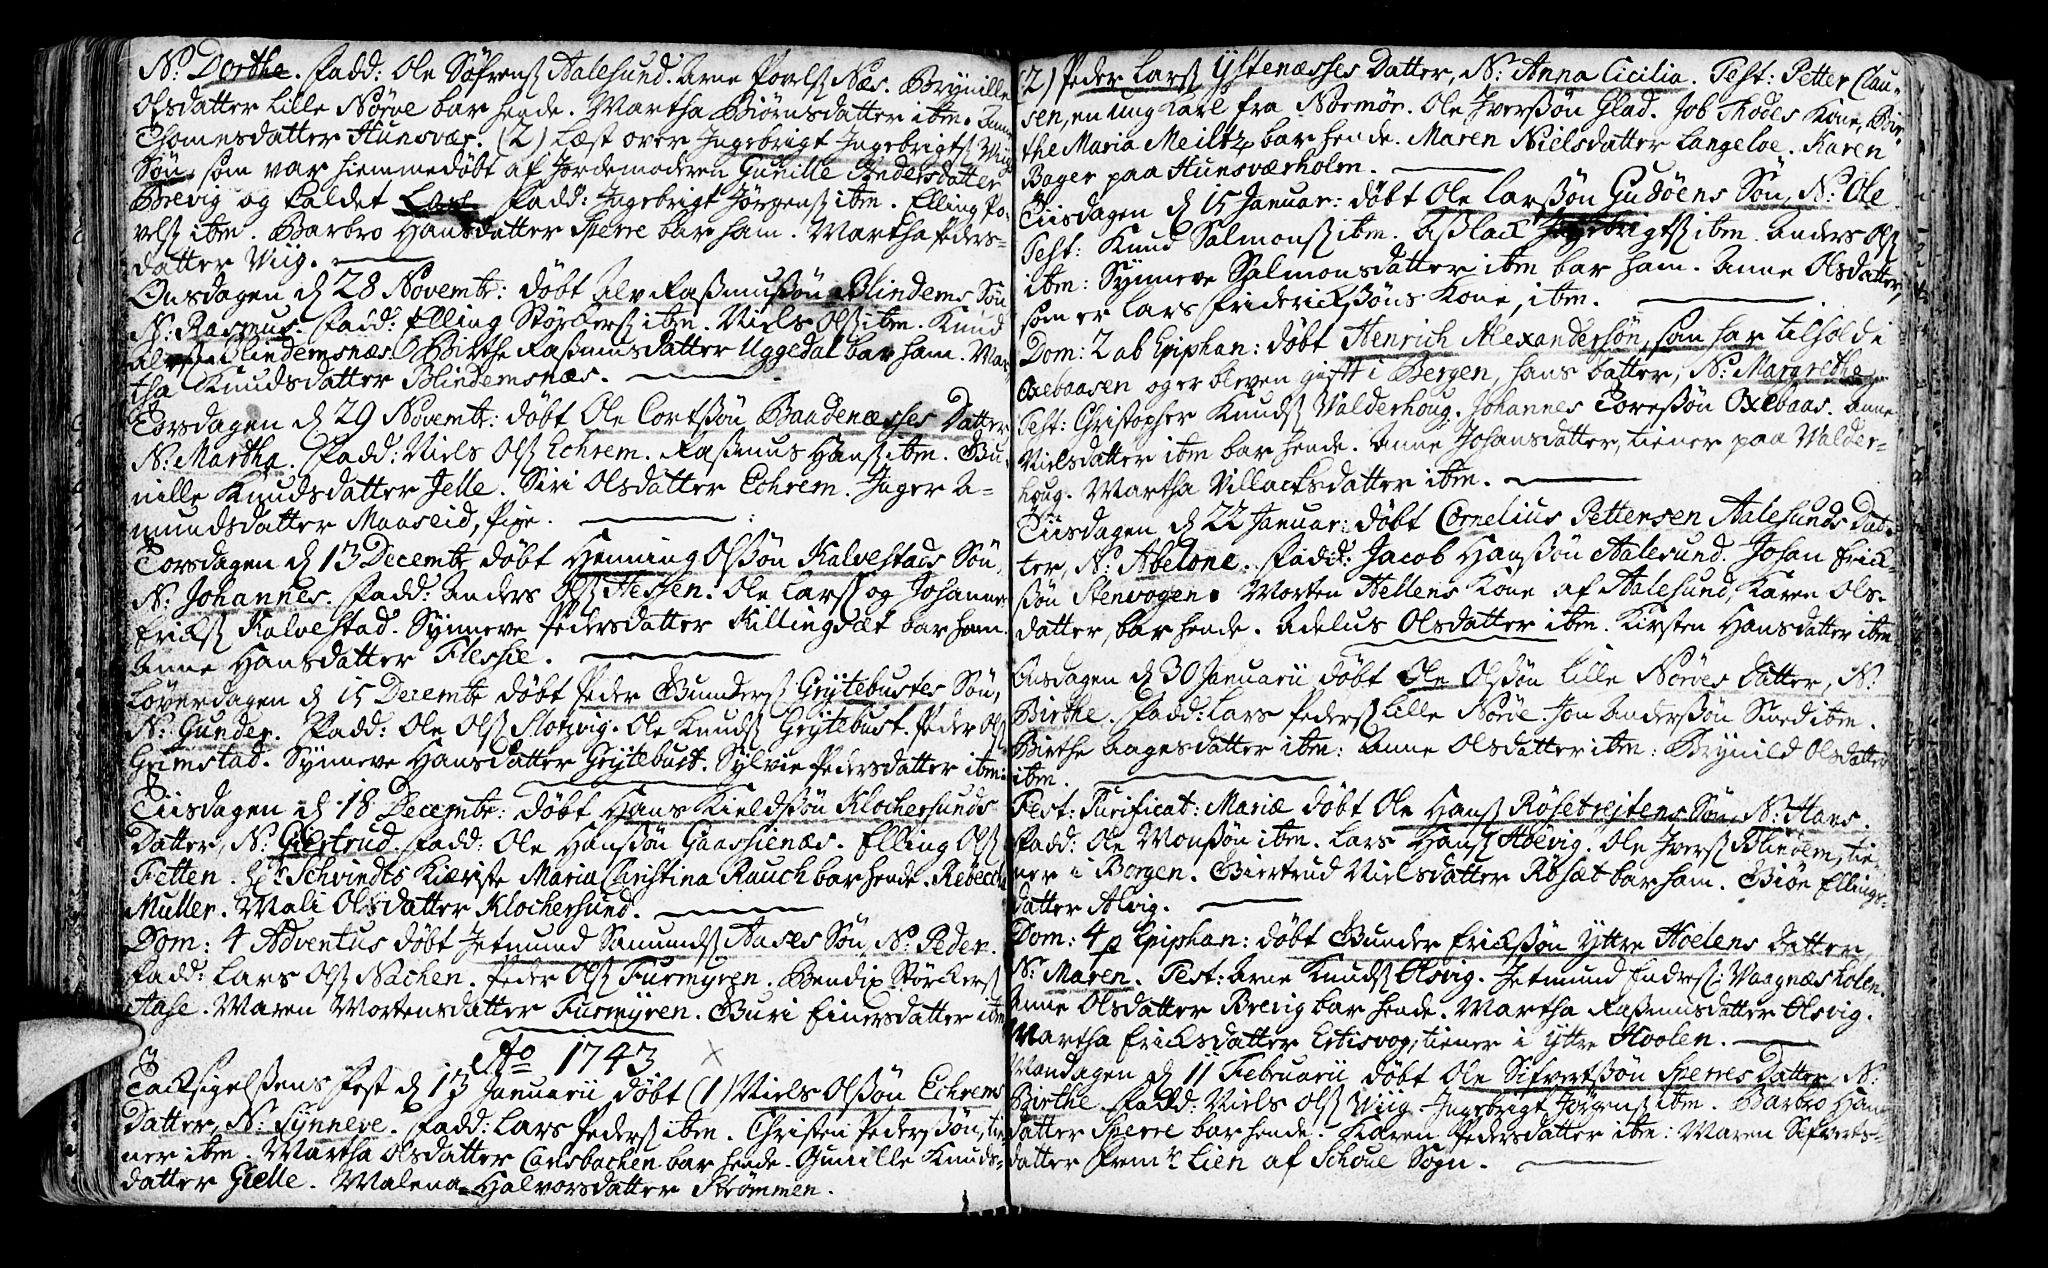 N: Dorthe. Fadd: Ole Söfrens Aalesund. Arne Povels Næs. Brynille
Olsdatter Lille Nörve bar hende. Martha Biörnsdatter ibm. Anne
Thomesdatter Hunsvær. (2) Læst over Ingebrigt Ingebrigts Wiigs
Sön, som var hiemmedöbt af Jordemoderen Gunille Andersdatter
Brevig og kaldet Lars. Fadd: Ingebrigt Jörgens ibm. Elling Po-
vels ibm. Barbro Hansdatter Sperre bar ham. Martha Peders-
datter Wiig.
Onsdagen d 28 Novembr: döbt Alv Rasmussön Blindems Sön
N: Rasmus. Fadd: Elling Störkers ibm. Niels Ols ibm. Knud
Alvs Blindemsnæs. Birthe Rasmusdatter Uggedal bar ham. Mar-
tha Knudsdatter Blindemsnæs.
Torsdagen d 29 Novembr: döbt Ole Cortssön Baadenæsses Datter
N: Martha. Fadd: Niels Ols Echrem. Rasmus Hans ibm. Gu-
nille Knudsdatter Jelle. Siri Olsdatter Echrem. Inger A-
mundsdatter Maaseid, Pige.
Torsdagen d 13 Decembr döbt Henning Olssön Kalvestads Sön,
N: Johannes. Fadd: Anders Ols Hessen. Ole Lars og Johannes
Ericks Kalvestad. Synneve Pedersdatter Killingsæt bar ham.
Anne Hansdatter Flessie.
Löverdagen d 15 Decembr döbt Peder Gunders Grytebustes Sön,
N: Gunder. Fadd: Ole Ols Slotzvig. Ole Knuds Grytebust. Peder Ols
Grimstad. Synneve Hansdatter Grytebust. Sylvie Pedersdatter ibm:
Tiisdagen d 18 Decembr: döbt Hans Kieldssön Klochersunds
Datter, N: Giertrud. Fadd: Ole Hanssön Gaassienæs. Elling Ols
Fetten. Hr Schvindts Kiæriste Maria Christina Rauch bar hende. Rebecca
Muller. Mali Olsdatter Klochersund.
Dom: 4 Adventus döbt Jetmund Samunds Aases Sön, N: Peder.
Fadd: Lars Ols Nachen. Peder Ols Furmyren. Bendix Störckers
Aase. Maren Mortensdatter Furmyren. Guri Einersdatter ibm
Ao 1743
Tacksigelssens Fest d 13 Januarii döbt (1) Niels Olssön Echrems
Datter, N: Synneve. Fadd: Lars Peders ibm. Christen Pederssön, tie-
ner ibm. Martha Olsdatter Carlsbachen bar hende. Gunille Knuds-
datter Gielle. Malena Halvorsdatter Strömmen.
(2) Peder Lars Ystenæsses Datter, N: Anna Cicilia. Test: Petter Clau-
sen, en ung Karl fra Normör. Ole Iverssön Glad. Job Thodes Kone, Bir-
the Maria Meiltz bar hende. Maren Nielsdatter Langeloe. Karen
Bager paa Hunsværholm.
Tiisdagen d 15 Januar: döbt Ole Larssön Gudöens Sön, N: Ole
Test: Knud Salmons ibm. Asslack Ingebrigts ibm. Anders Ols
ibm: Synneve Salmonsdatter ibm bar ham. Anne Olsdatter,
som er Lars Friderickssöns Kone, ibm.
Dom: 2 ab Epiphan: döbt Henrich Alexandersön, som har tilhold i
Oxebaasen og er bleven gift i Bergen, hans Datter, N: Margrethe
Test: Christopher Knuds Walderhoug. Johannes Toressön Oxebaas. Anne
Nielsdatter ibm bar hende. Anne Johansdatter, tiener paa Walder-
houg. Martha Villacksdatter ibm.
Tiisdagen d 22 Januar: döbt Cornelius Pettersen Aalesunds Dat-
ter, N: Abelone. Fadd: Jacob Hanssön Aalesund. Johan Erick-
ssön Stenvogen. Morten Hellens Kone af Aalesund, Karen Ols-
datter, bar hende. Adelus Olsdatter ibm. Kirsten Hansdatter ibm
Onsdagen d 30 Januarii döbt Ole Olssön Lille Nörves Datter, N:
Birthe. Fadd: Lars Peders Lille Nörve. Jon Anderssön Smed ibm.
Birthe Aagesdatter ibm: Anne Olsdatter ibm: Brynild Olsdatter
ibm.
Fest: Purificat: Mariæ döbt Ole Hans Rösetrejtens Sön, N: Hans.
Fadd: Ole Monssön ibm. Lars Hans Hoevig. Ole Ivers Blindem, tie-
ner i Borgen. Giertrud Nielsdatter Röset bar ham. Giör Ellings-
datter Alvig.
Dom: 4 p Epiphan: döbt Gunder Erickssön Yttre Hoelens Datter,
N: Maren. Test: Arne Knuds Olsvig. Jetmund Endres Vaagnæsholen.
Anne Olsdatter Brevig bar hende. Martha Rasmusdatter Olsvig.
Martha Ericksdatter Erbisvog, tiener i Yttre Hoolen.
Mandagen d 11 Februarii döbt Ole Sifvertssön Sperres Datter, N:
Birthe. Fadd: Niels Ols Wiig. Ingebrigt Jörgens ibm. Barbro Hans
datter Sperre bar hende. Karen Pedersdatter ibm: Maren Sifverts-
datter Lien af Schoue Sogn.